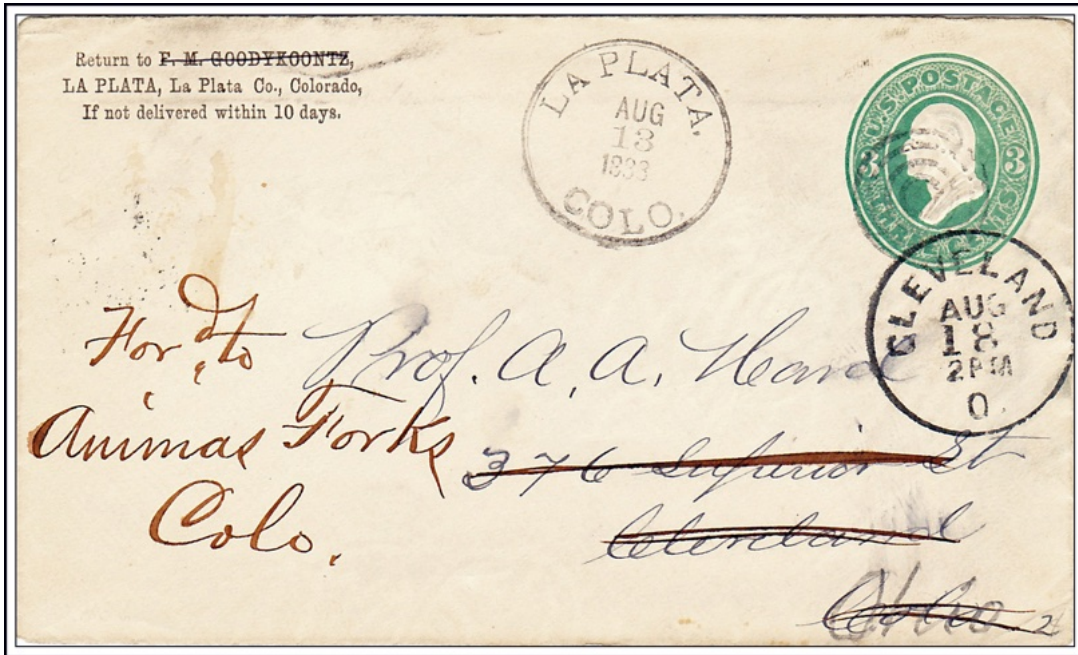 Return to F. M. GOODYKOONTZ,
LA PLATA, La Plata Co., Colorado,
If not delivered within 10 days.
LA PLATA.
AUG
13
1883
COLO.
U.S. POSTAGE
3 3
THREE CENTS
CLEVELAND
AUG
18
2PM
O.
For'd to
Animas Forks
Colo.
Prof. A. A. Hard
376 Superior St
Cleveland
Ohio